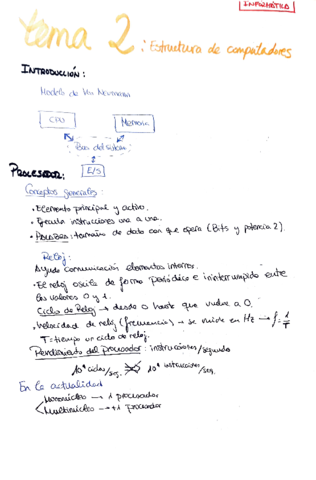 INFORMÁTICA
tema 2: Estructura de computadores
INTRODUCCIÓN:
Modelo de Von Neumann
CPU
Memoria
Bus del sistema
E/S
PROCESADOR:
Conceptos generales:
• Elemento principal y activo.
• Ejecuta instrucciones una a una.
• PALABRA: tamaño de dato con que opera (Bits y potencia 2).
Reloj:
Ayuda comunicación elementos internos.
• El reloj oscila de forma periódica e ininterrumpida entre
los valores 0 y 1.
Ciclo de Reloj → desde 0 hasta que vuelve a 0.
• Velocidad de reloj (frecuencia) → se mide en Hz → f = 1/T
T = tiempo un ciclo de reloj.
Rendimiento del procesador: instrucciones/segundo
ciclos/seg. instrucciones/seg.
En la actualidad
Mononúcleo → 1 procesador
Multinúcleo → +1 procesador